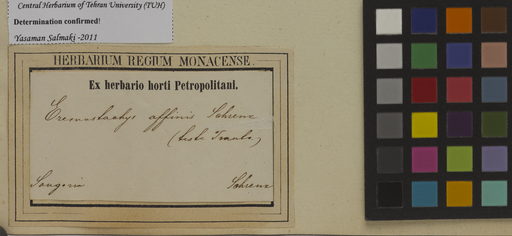 Central Herbarium of Tehran University (TUH)
Determination confirmed!
Yasaman Salmaki -2011
HERBARIUM REGIUM MONACENSE.
Ex herbario horti Petropolitani.
Eremostachys affinis Schrenk
(teste Trautv.)
Songoria
Schrenk